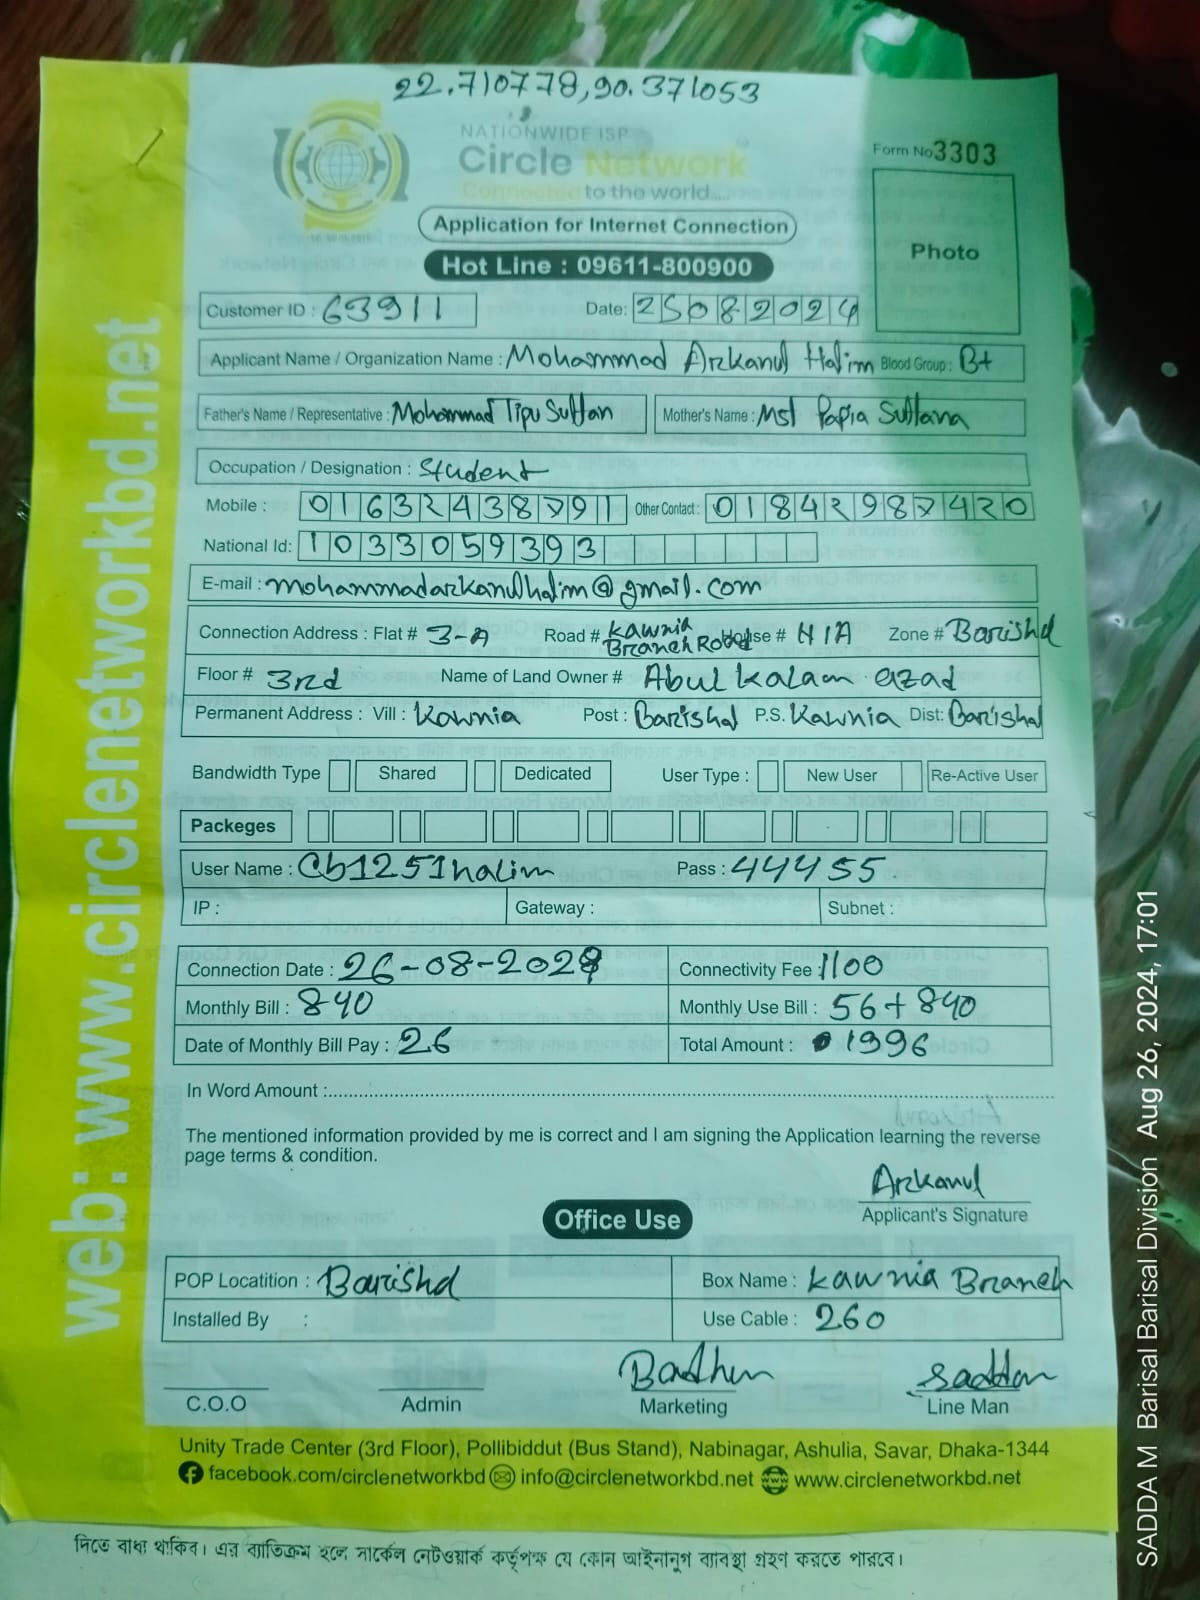 22.710778,90.371053
NATIONWIDE ISP
Circle Network
Connected to the world....
Form No 3303
Application for Internet Connection
Photo
Hot Line : 09611-800900
Customer ID : 63911 Date: 25082024
Applicant Name / Organization Name : Mohammad Arkanul Halim Blood Group : B+
Father's Name / Representative : Mohammad Tipu Sultan Mother's Name : Mst Papia Sultana
Occupation / Designation : Student
Mobile : 01632438791 Other Contact : 01842987420
National Id: 1033059393
E-mail : mohammadarkanulhalim@gmail.com
Connection Address : Flat # 3-A Road # Kawnia Branch Road House # H1A Zone # Barishal
Floor # 3rd Name of Land Owner # Abul Kalam azad
Permanent Address : Vill : Kawnia Post : Barishal P.S. Kawnia Dist: Barishal
Bandwidth Type Shared Dedicated User Type : New User Re-Active User
Packeges
User Name : Cb1251halim Pass : 44455
IP : Gateway : Subnet :
Connection Date : 26-08-2024 Connectivity Fee : 1100
Monthly Bill : 840 Monthly Use Bill : 56+840
Date of Monthly Bill Pay : 26 Total Amount : 1996
In Word Amount :
The mentioned information provided by me is correct and I am signing the Application learning the reverse
page terms & condition.
Arkanul
Applicant's Signature
Office Use
POP Locatition : Barishal Box Name : Kawnia Branch
Installed By : Use Cable : 260
Badhon Saddam
C.O.O Admin Marketing Line Man
Unity Trade Center (3rd Floor), Pollibiddut (Bus Stand), Nabinagar, Ashulia, Savar, Dhaka-1344
facebook.com/circlenetworkbd info@circlenetworkbd.net www.circlenetworkbd.net
দিতে বাধ্য থাকিব। এর ব্যতিক্রম হলে সার্কেল নেটওয়ার্ক কর্তৃপক্ষ যে কোন আইনানুগ ব্যাবস্থা গ্রহণ করতে পারবে।
web: www.circlenetworkbd.net
SADDA M Barisal Barisal Division Aug 26, 2024, 17:01